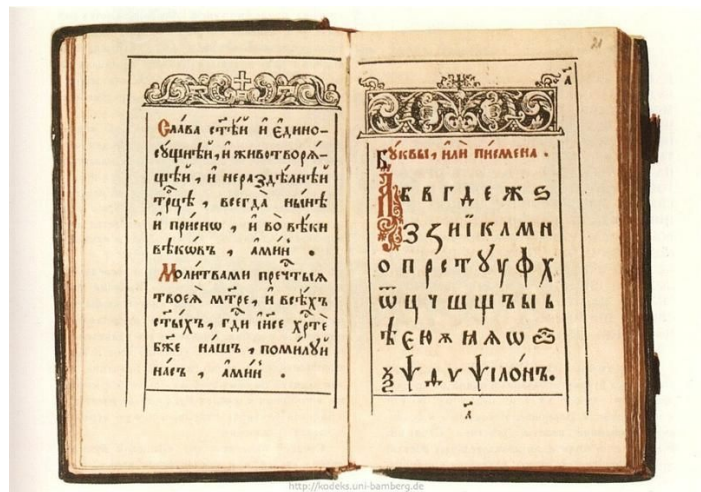 Сла́ва ст҃ѣ́й и҆ є҆дино-
сꙋ́щнѣй, и҆ животворѧ́-
щѣй, и҆ нераздѣ́лнѣй
трⷪ҇цѣ, всегда̀ ны́нѣ
и҆ при́снѡ, и҆ во̀ вѣ́ки
вѣкѡ́въ, а҆ми́нь.
Моли́твами пречⷭ҇тыѧ
твоеѧ̀ мт҃ре, и҆ всѣ́хъ
ст҃ы́хъ, гдⷭ҇и і҆и҃се хрⷭ҇тѐ
бж҃е на́шъ, поми́лꙋй
на́съ, а҆ми́нь.
21
а҃
Бꙋ́квы, и҆лѝ пи́смена.
А Б В Г Д Е Ж Ѕ
З Ꙁ И Ї К Л М Н
О П Р С Т Ꙋ У Ф Х
Ѿ Ц Ч Ш Щ Ъ Ы Ь
Ѣ Є Ю Ѫ Ꙗ Ѧ Ѡ
Ѯ Ѱ Ѵ ѱіло́нъ.
а҃
http://kodeks.uni-bamberg.de